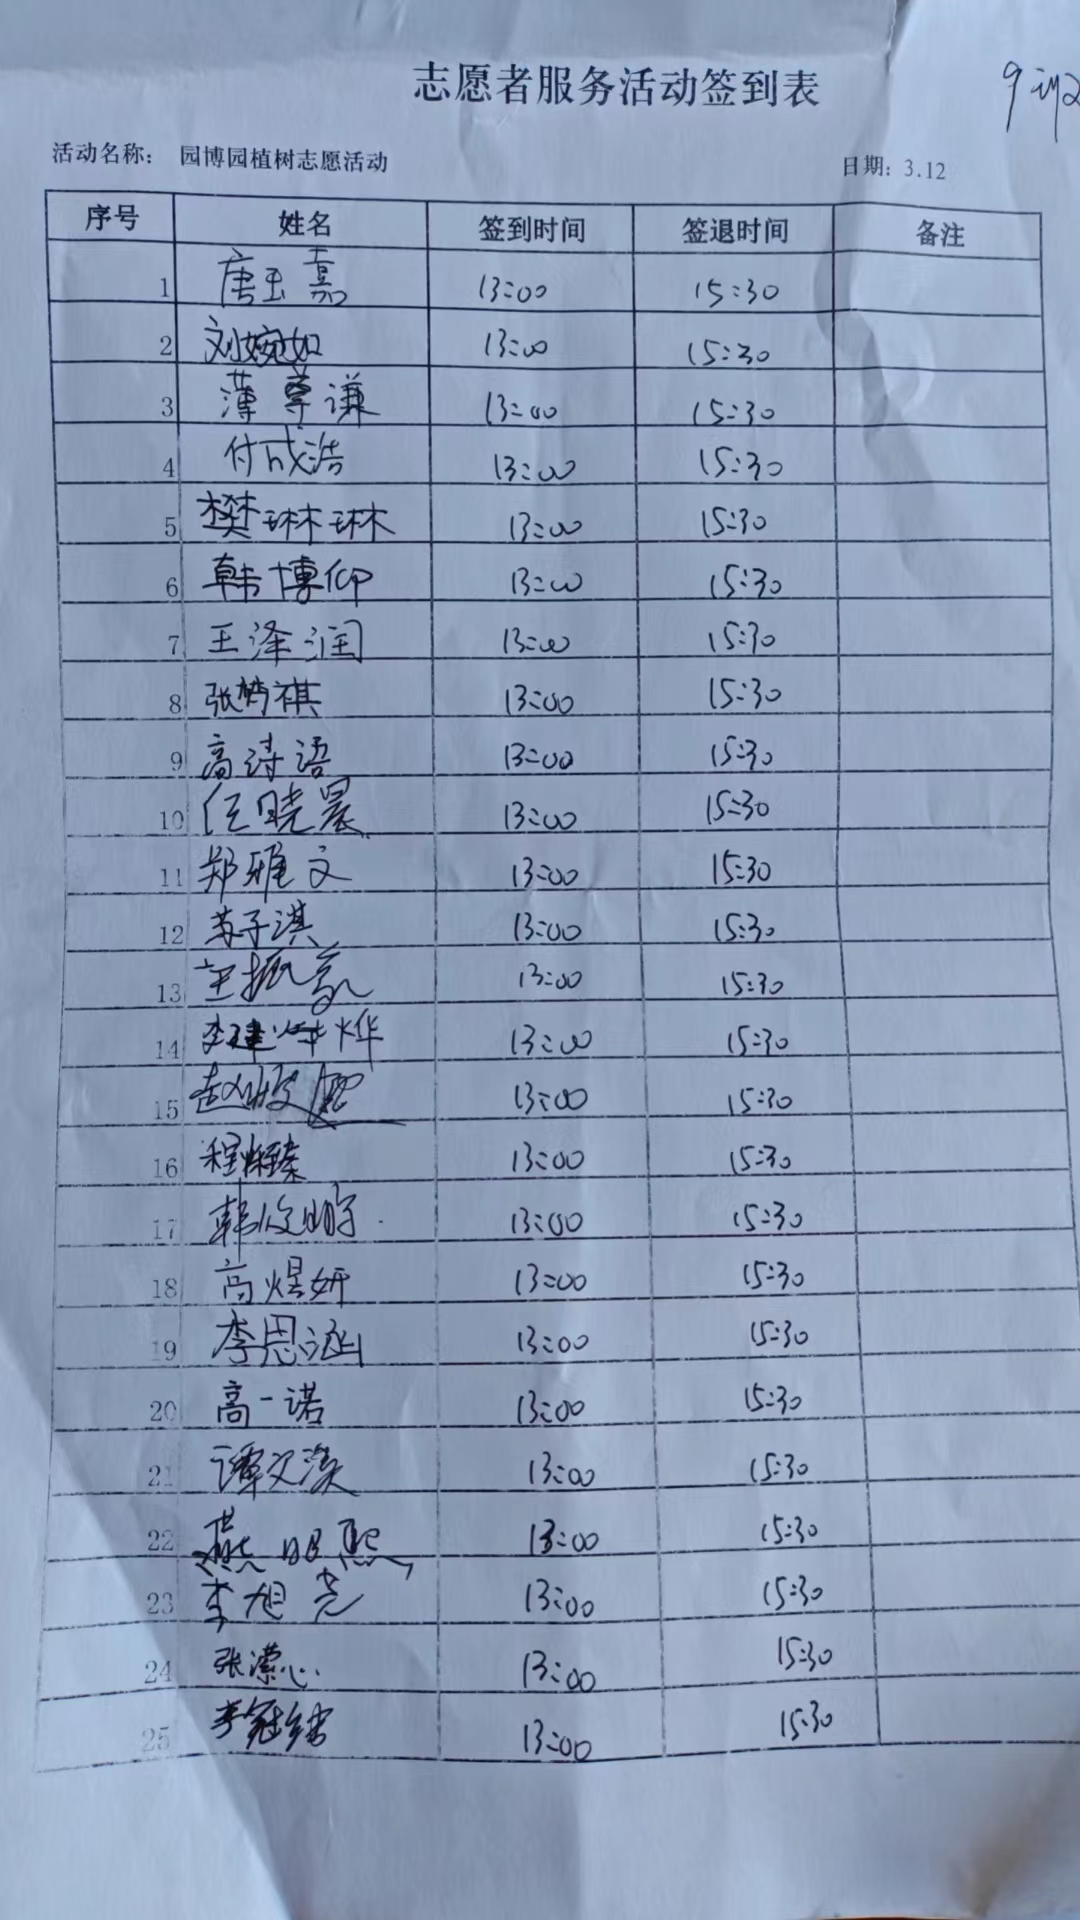 志愿者服务活动签到表
活动名称： 园博园植树志愿活动 日期：3.12
序号 姓名 签到时间 签退时间 备注
1 唐玉嘉 13:00 15:30
2 刘婉如 13:00 15:30
3 薄尊谦 13:00 15:30
4 付成浩 13:00 15:30
5 樊琳琳 13:00 15:30
6 韩博仰 13:00 15:30
7 王泽润 13:00 15:30
8 张梦祺 13:00 15:30
9 高诗语 13:00 15:30
10 任晓晨 13:00 15:30
11 郑雅文 13:00 15:30
12 苏子淇 13:00 15:30
13 王振豪 13:00 15:30
14 李建烨 13:00 15:30
15 赵 13:00 15:30
16 程 臻 13:00 15:30
17 韩俊鹏 13:00 15:30
18 高煜妍 13:00 15:30
19 李恩涵 13:00 15:30
20 高一诺 13:00 15:30
21 谭文 13:00 15:30
22 燕明熙 13:00 15:30
23 李旭尧 13:00 15:30
24 张濛心 13:00 15:30
25 李冠 13:00 15:30